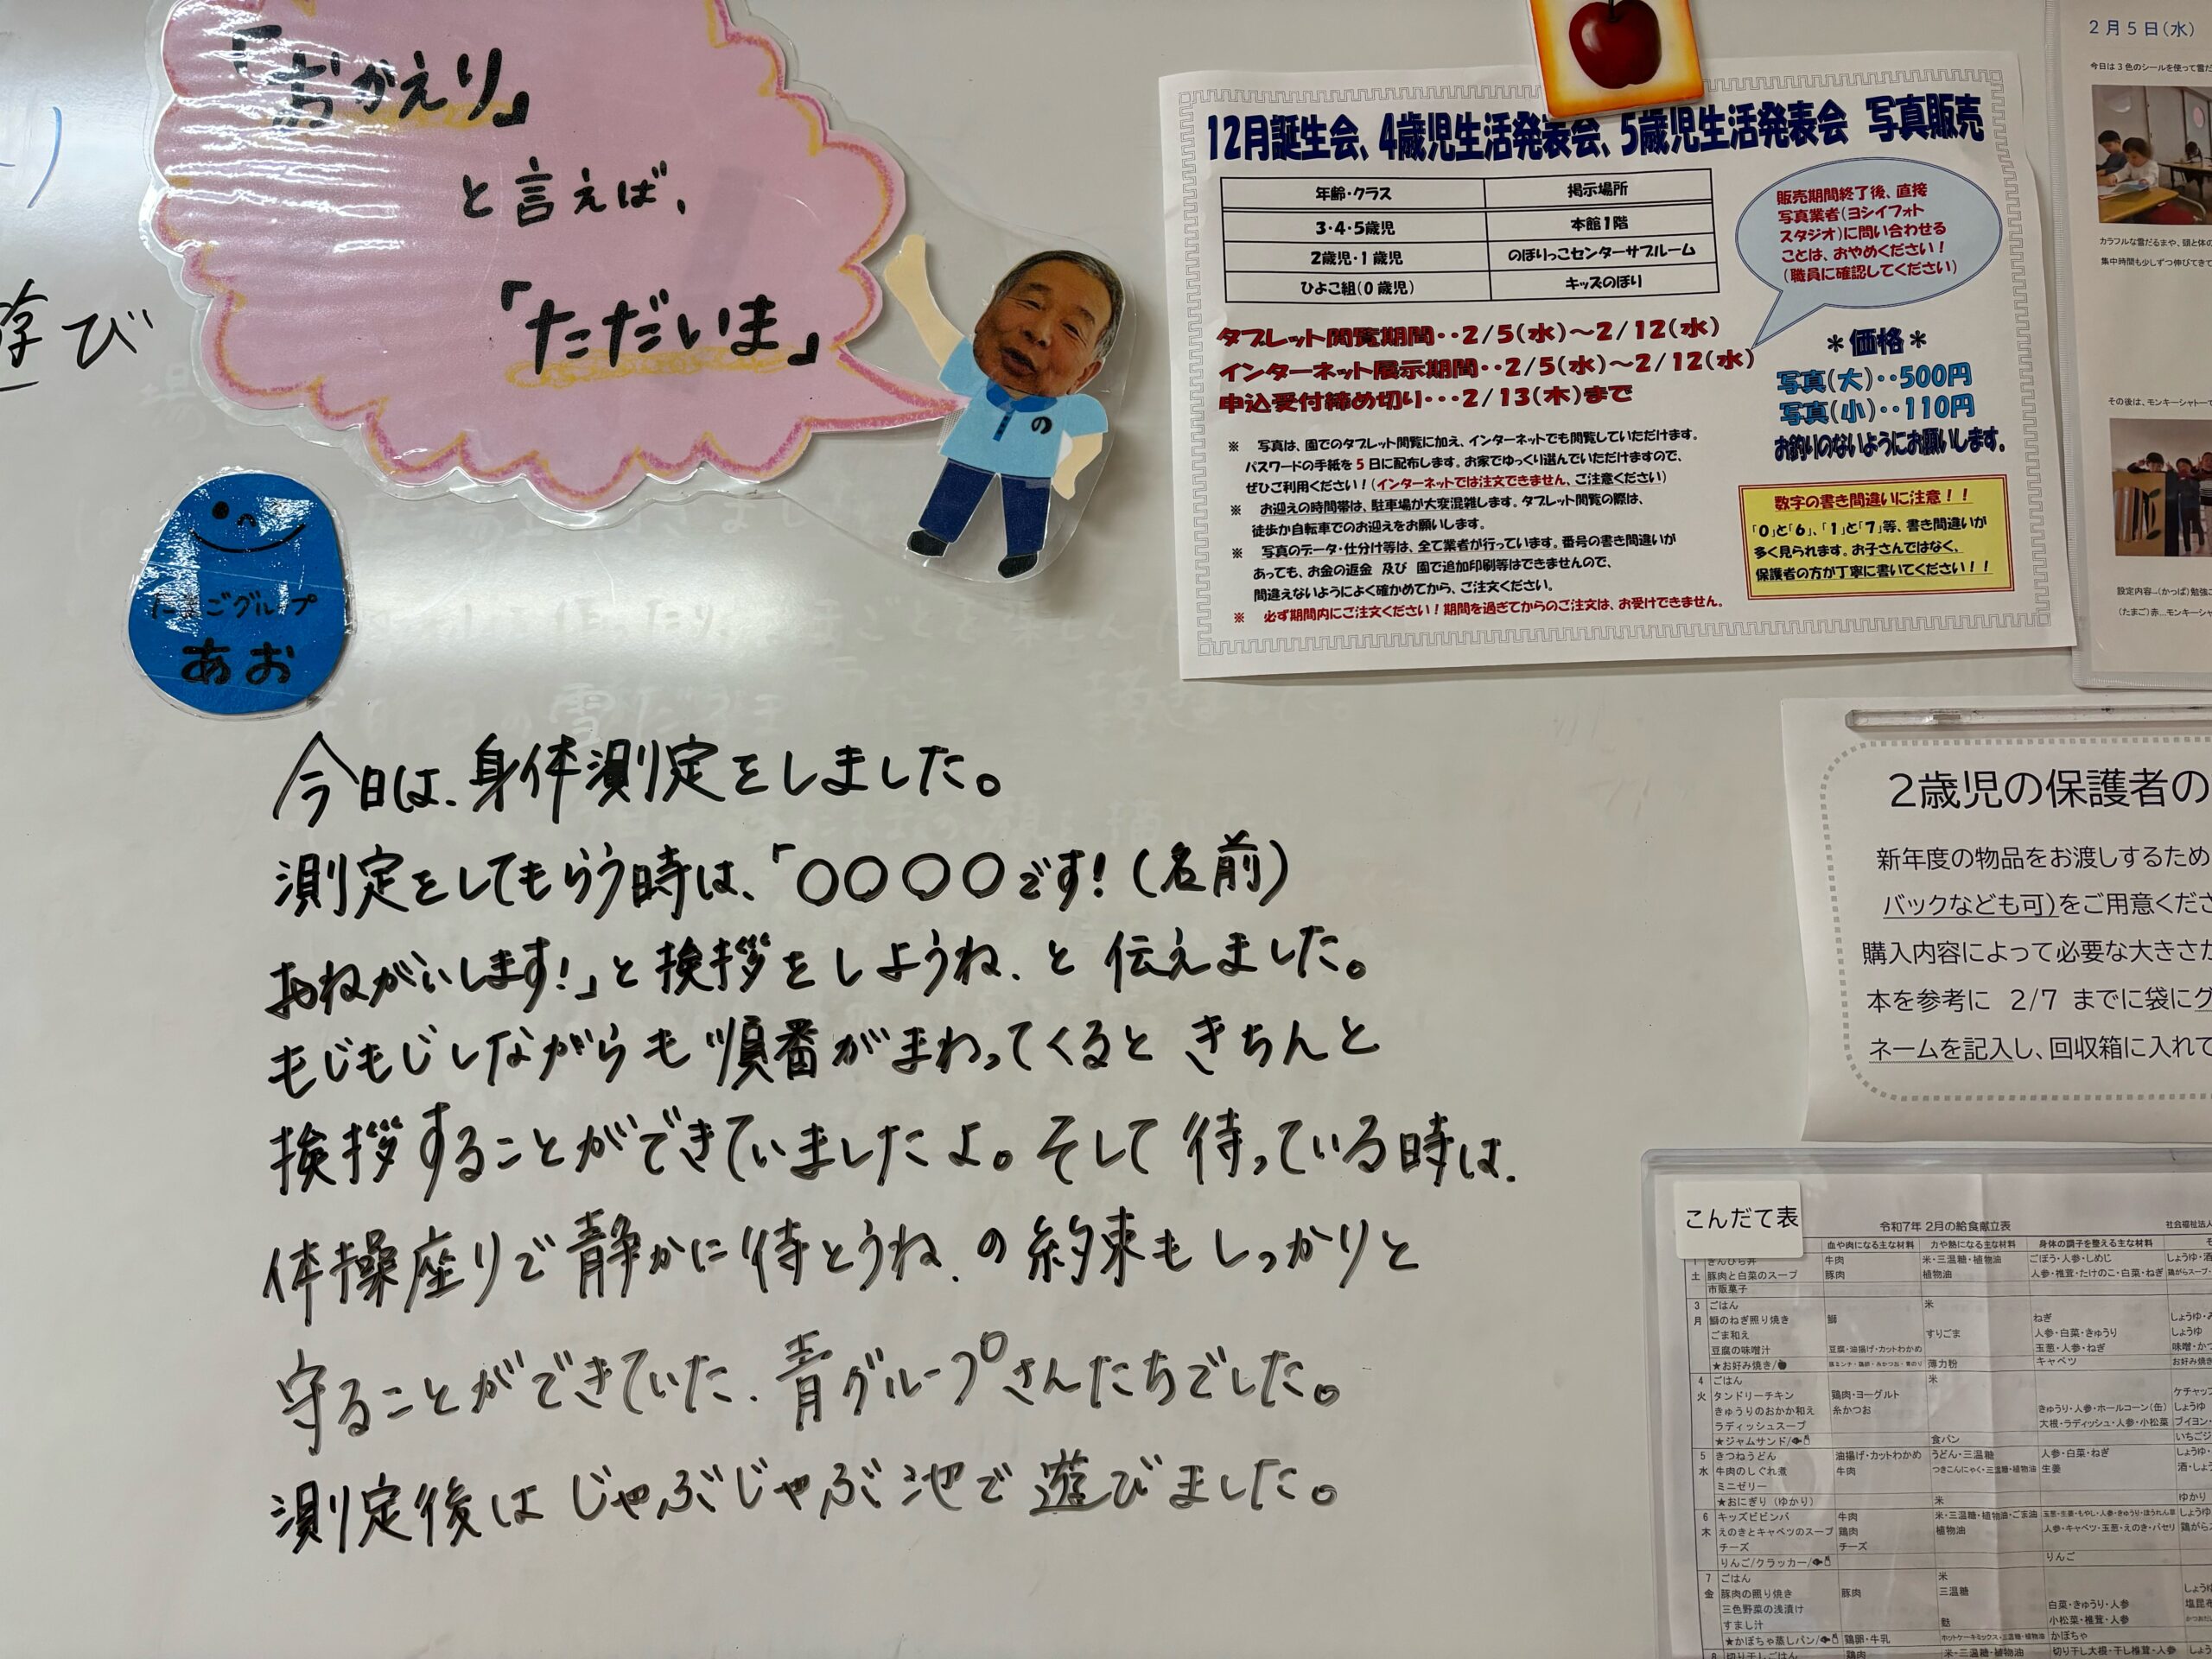 「おかえり」
と言えば、
「ただいま」
の
遊び
たまごグループ
あお
今日は、身体測定をしました。
測定をしてもらう時は、「〇〇〇〇です!(名前)
おねがいします!」と挨拶をしようね、と伝えました。
もじもじしながらも順番がまわってくるときちんと
挨拶することができていましたよ。そして待っている時は、
体操座りで静かに待とうね、の約束もしっかりと
守ることができていた、青グループさんたちでした。
測定後はじゃぶじゃぶ池で遊びました。
12月誕生会、4歳児生活発表会、5歳児生活発表会 写真販売
年齢・クラス 掲示場所
3・4・5歳児 本館1階
2歳児・1歳児 のぼりっこセンターサブルーム
ひよこ組(0歳児) キッズのぼり
販売期間終了後、直接
写真業者(ヨシイフォト
スタジオ)に問い合わせる
ことは、おやめください!
(職員に確認してください)
タブレット閲覧期間・・2/5(水)～2/12(水)
インターネット展示期間・・2/5(水)～2/12(水)
申込受付締め切り・・・2/13(木)まで
*価格*
写真(大)・・500円
写真(小)・・110円
お釣りのないようにお願いします。
※ 写真は、園でのタブレット閲覧に加え、インターネットでも閲覧していただけます。
パスワードの手紙を5日に配布します。お家でゆっくり選んでいただけますので、
ぜひご利用ください!(インターネットでは注文できません、ご注意ください)
※ お迎えの時間帯は、駐車場が大変混雑します。タブレット閲覧の際は、
徒歩か自転車でのお迎えをお願いします。
※ 写真のデータ・仕分け等は、全て業者が行っています。番号の書き間違いが
あっても、お金の返金 及び 園で追加印刷等はできませんので、
間違えないようによく確かめてから、ご注文ください。
※ 必ず期間内にご注文ください!期間を過ぎてからのご注文は、お受けできません。
数字の書き間違いに注意!!
「0」と「6」、「1」と「7」等、書き間違いが
多く見られます。お子さんではなく、
保護者の方が丁寧に書いてください!!
2月5日(水)
今日は3色のシールを使って雪だ
カラフルな雪だるまや、頭と体の
集中時間も少しずつ伸びてきて
その後は、モンキーシャトーで
設定内容…(かっぱ)勉強
(たまご)赤…モンキーシャ
2歳児の保護者の
新年度の物品をお渡しするため
バックなども可)をご用意くださ
購入内容によって必要な大きさが
本を参考に 2/7 までに袋にク
ネームを記入し、回収箱に入れて
こんだて表
令和7年 2月の給食献立表 社会福祉法人
血や肉になる主な材料 力や熱になる主な材料 身体の調子を整える主な材料
1 きんぴら丼 牛肉 米・三温糖・植物油 ごぼう・人参・しめじ しょうゆ・酒
土 豚肉と白菜のスープ 豚肉 植物油 人参・椎茸・たけのこ・白菜・ねぎ 鶏がらスープ・
市販菓子
3 ごはん 米
月 鰤のねぎ照り焼き 鰤 ねぎ しょうゆ・み
ごま和え すりごま 人参・白菜・きゅうり しょうゆ
豆腐の味噌汁 豆腐・油揚げ・カットわかめ 玉葱・人参・ねぎ 味噌・かつ
★お好み焼き/ 薄力粉 キャベツ お好み焼き
4 ごはん 米
火 タンドリーチキン 鶏肉・ヨーグルト ケチャップ
きゅうりのおかか和え 糸かつお きゅうり・人参・ホールコーン(缶) しょうゆ
ラディッシュスープ 大根・ラディッシュ・人参・小松菜 ブイヨン・
★ジャムサンド/ 食パン いちごジ
5 きつねうどん 油揚げ・カットわかめ うどん・三温糖 人参・白菜・ねぎ しょうゆ・
水 牛肉のしぐれ煮 牛肉 つきこんにゃく・三温糖・植物油 生姜 酒・しょう
ミニゼリー
★おにぎり(ゆかり) 米 ゆかり
6 キッズビビンバ 牛肉 米・三温糖・植物油・ごま油 玉葱・生姜・もやし・人参・きゅうり・ほうれん草 しょうゆ
木 えのきとキャベツのスープ 鶏肉 植物油 人参・キャベツ・玉葱・えのき・パセリ 鶏がらス
チーズ チーズ
りんご/クラッカー/ りんご
7 ごはん 米
金 豚肉の照り焼き 豚肉 三温糖 しょうゆ
三色野菜の浅漬け 白菜・きゅうり・人参 塩昆布
すまし汁 麩 小松菜・椎茸・人参
★かぼちゃ蒸しパン/ 鶏卵・牛乳 ホットケーキミックス・三温糖・植物油 かぼちゃ
8 切り干しごはん 鶏肉 米・三温糖・植物油 切り干し大根・干し椎茸・人参 しょう